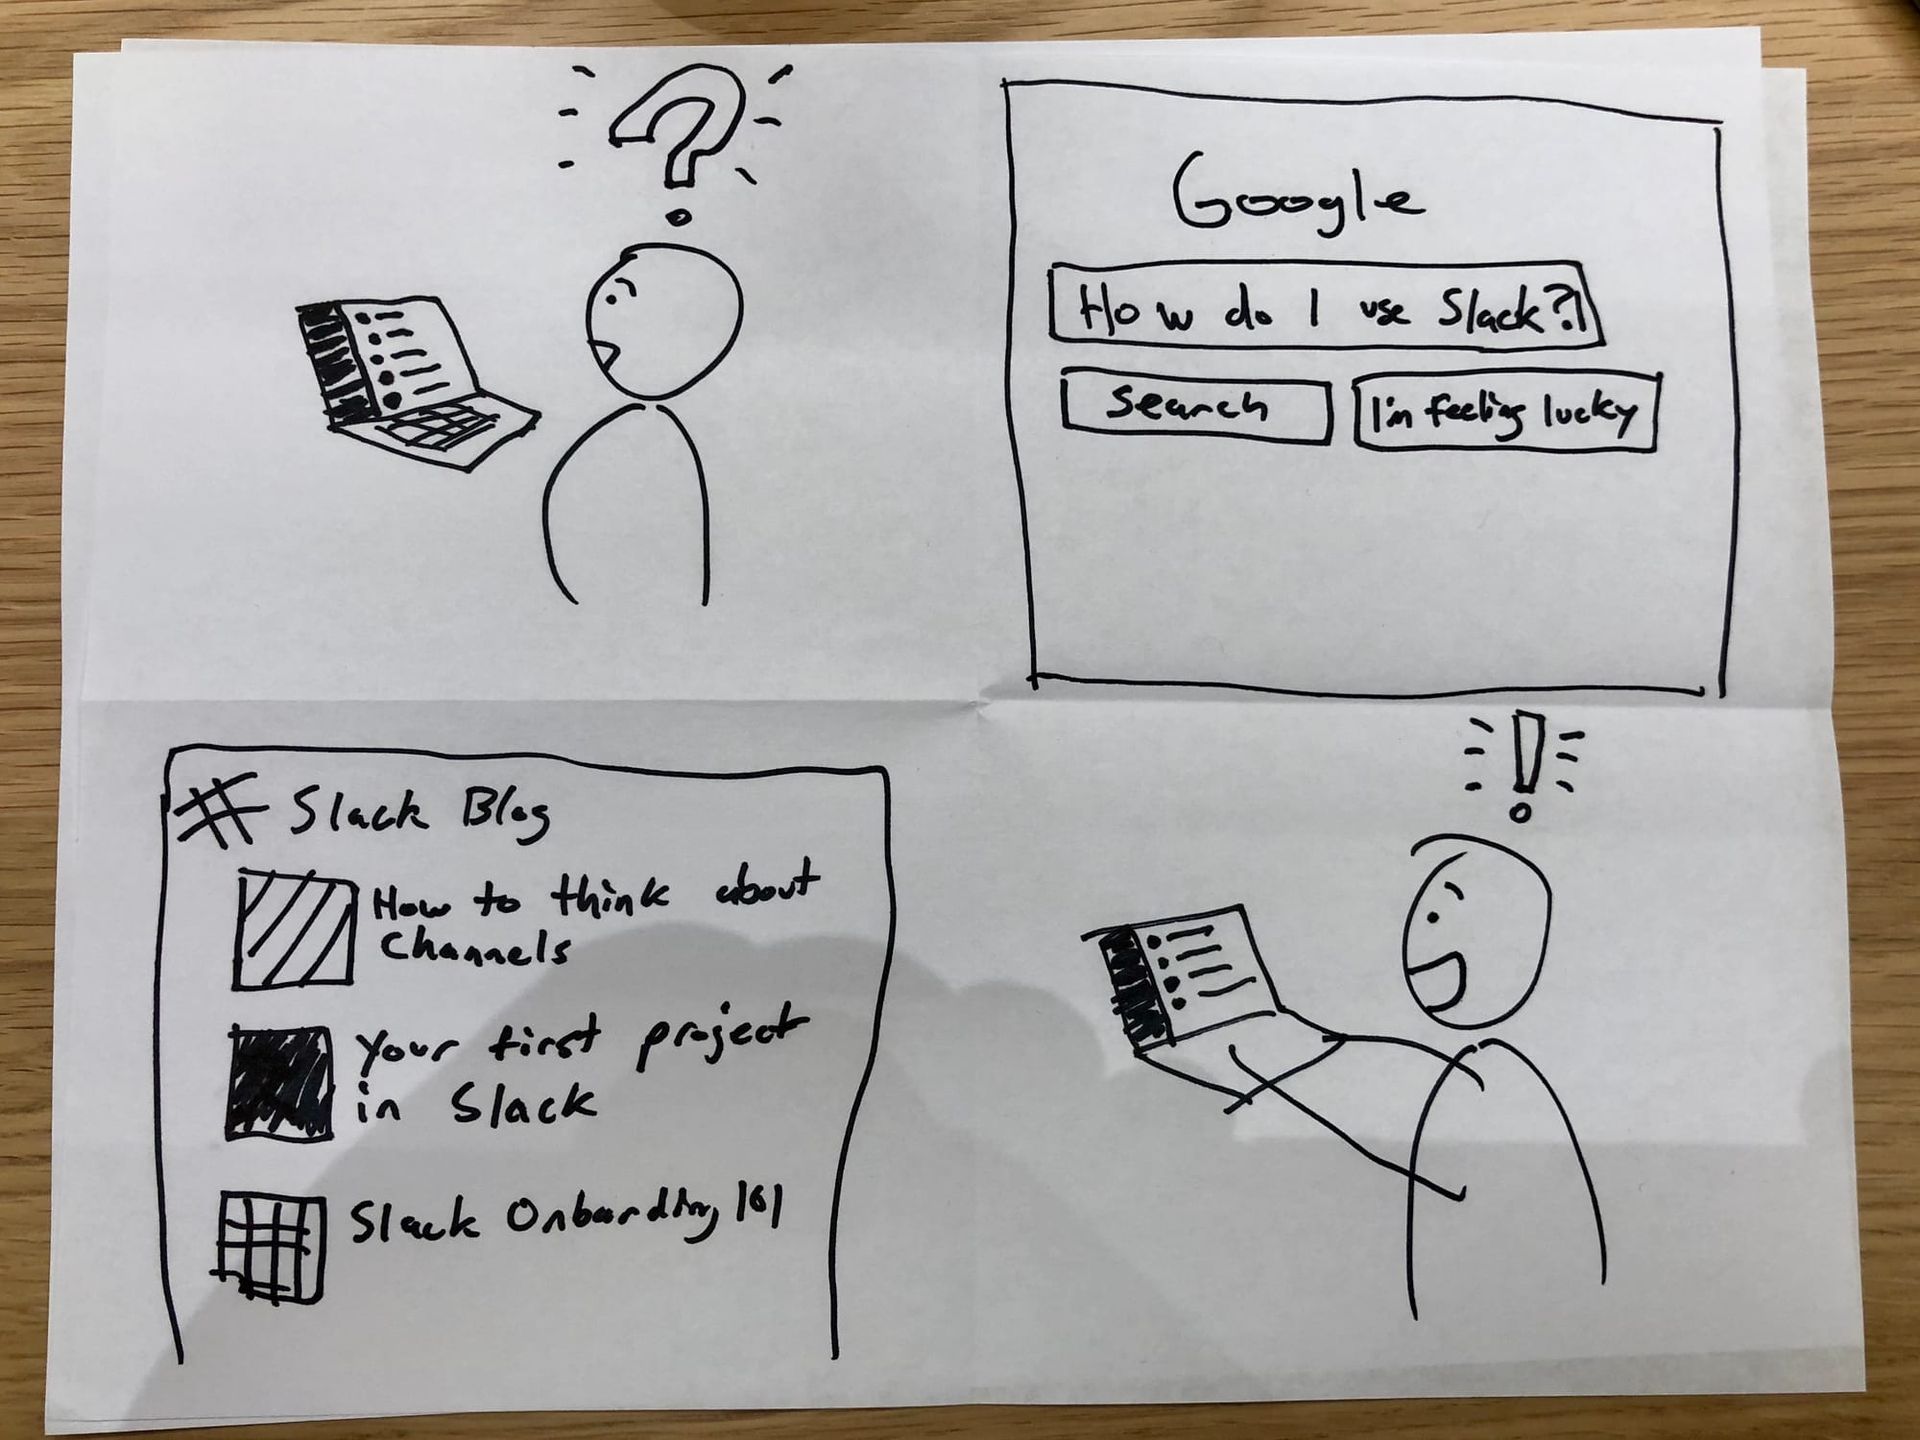 ?
Google
How do I use Slack?
Search
I'm feeling lucky
# Slack Blog
How to think about
Channels
Your first project
in Slack
Slack Onboarding 101
!